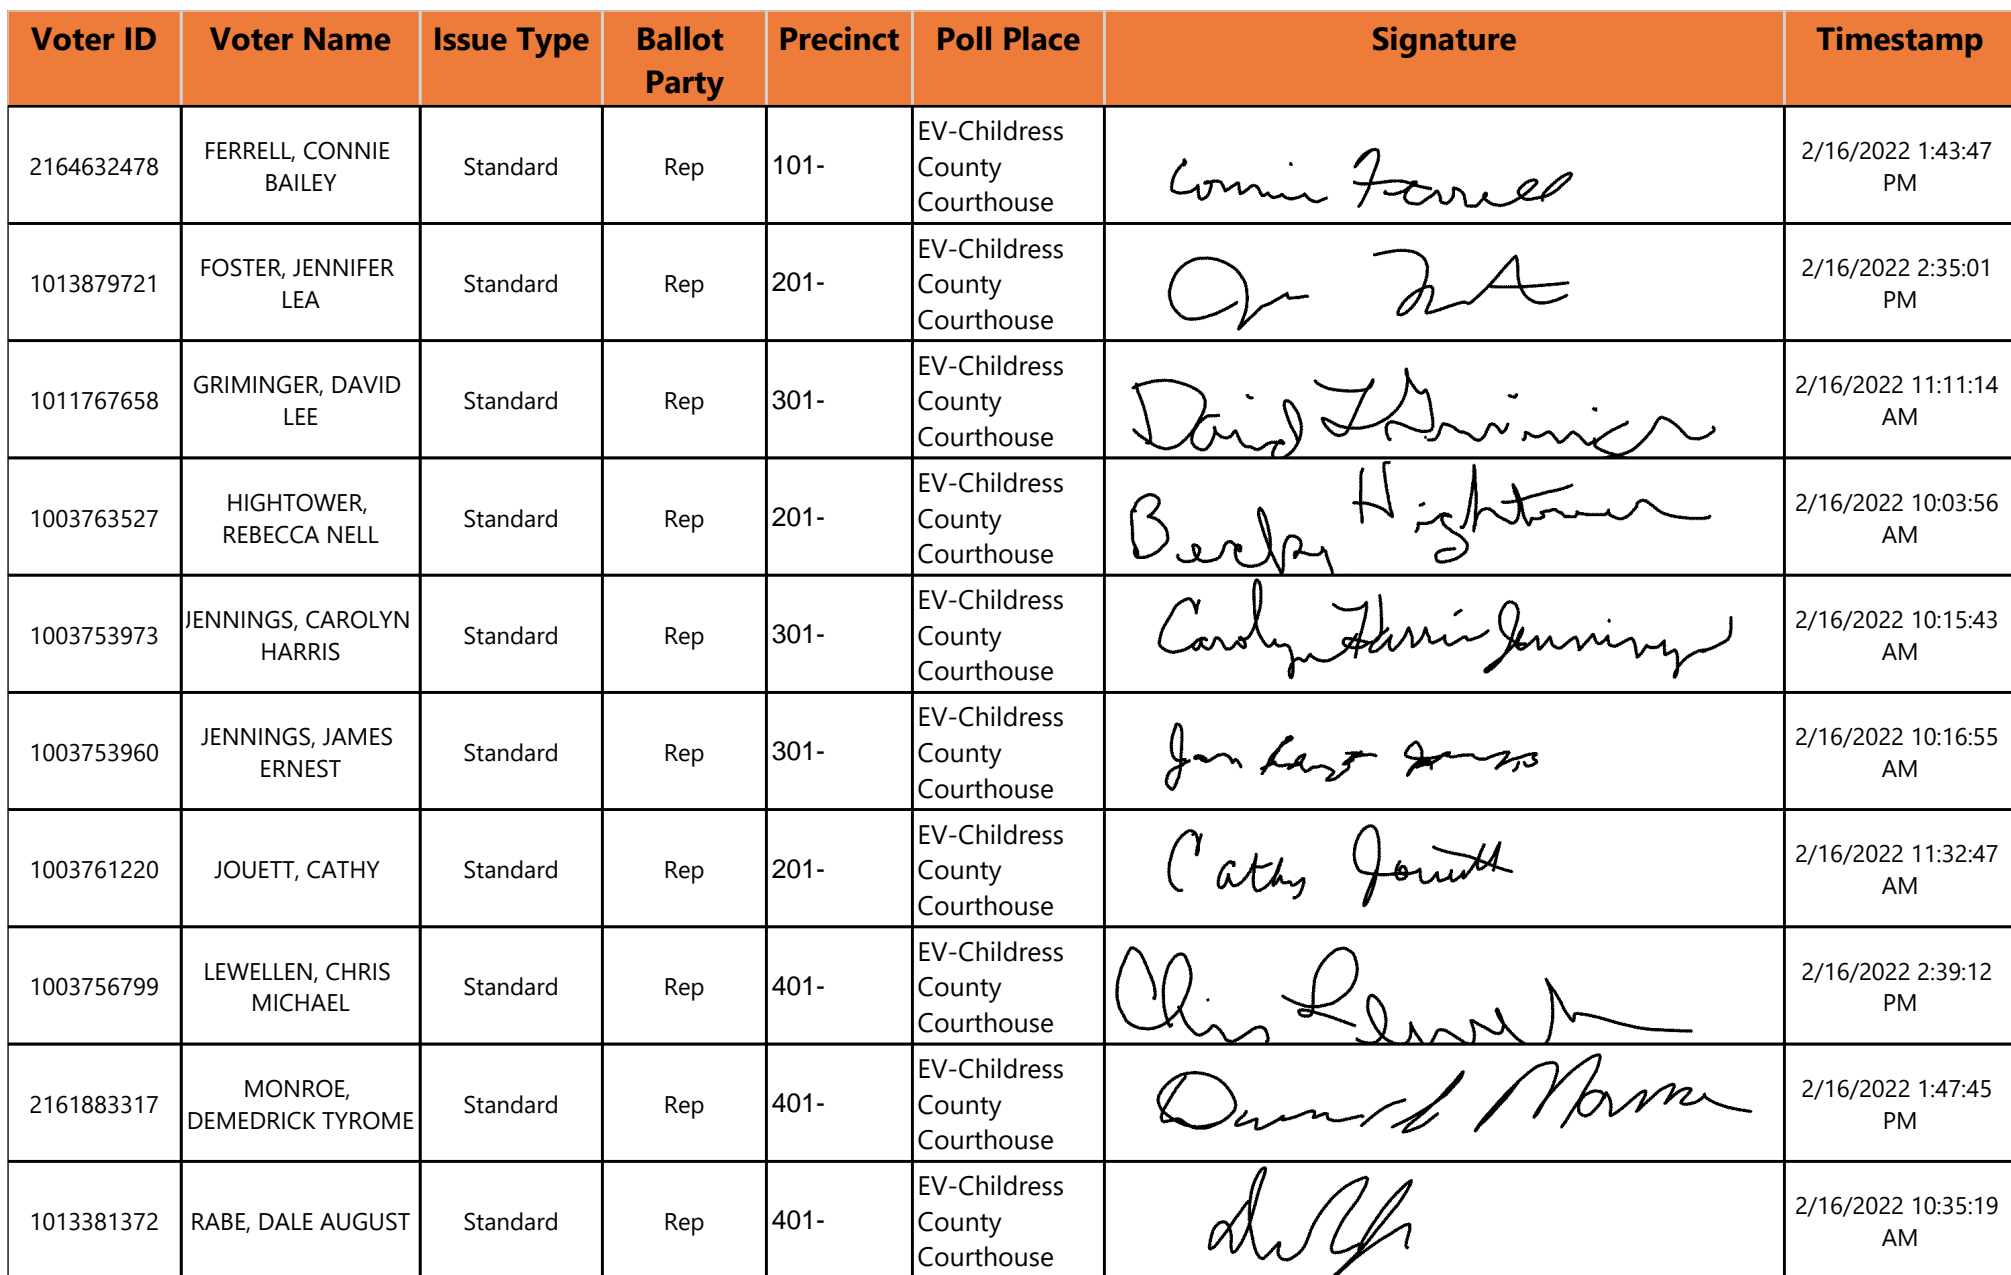 Voter ID Voter Name Issue Type Ballot Precinct Poll Place Signature Timestamp
Party
2164632478 FERRELL, CONNIE BAILEY Standard Rep 101- EV-Childress County Courthouse Connie Ferrell 2/16/2022 1:43:47 PM
1013879721 FOSTER, JENNIFER LEA Standard Rep 201- EV-Childress County Courthouse 2/16/2022 2:35:01 PM
1011767658 GRIMINGER, DAVID LEE Standard Rep 301- EV-Childress County Courthouse David 2/16/2022 11:11:14 AM
1003763527 HIGHTOWER, REBECCA NELL Standard Rep 201- EV-Childress County Courthouse Becky Hightower 2/16/2022 10:03:56 AM
1003753973 JENNINGS, CAROLYN HARRIS Standard Rep 301- EV-Childress County Courthouse Carolyn Harris Jennings 2/16/2022 10:15:43 AM
1003753960 JENNINGS, JAMES ERNEST Standard Rep 301- EV-Childress County Courthouse 2/16/2022 10:16:55 AM
1003761220 JOUETT, CATHY Standard Rep 201- EV-Childress County Courthouse Cathy Jouett 2/16/2022 11:32:47 AM
1003756799 LEWELLEN, CHRIS MICHAEL Standard Rep 401- EV-Childress County Courthouse Chris 2/16/2022 2:39:12 PM
2161883317 MONROE, DEMEDRICK TYROME Standard Rep 401- EV-Childress County Courthouse 2/16/2022 1:47:45 PM
1013381372 RABE, DALE AUGUST Standard Rep 401- EV-Childress County Courthouse 2/16/2022 10:35:19 AM